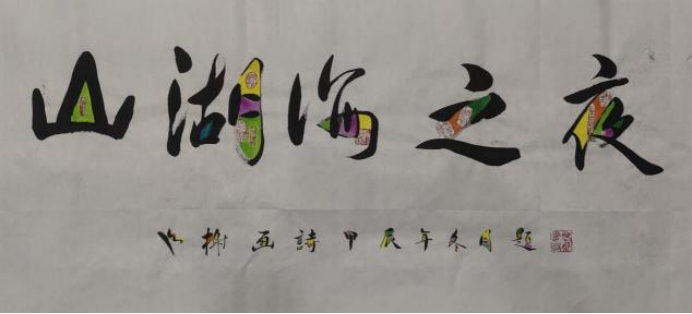 山湖海之夜
画詩甲辰年冬月題